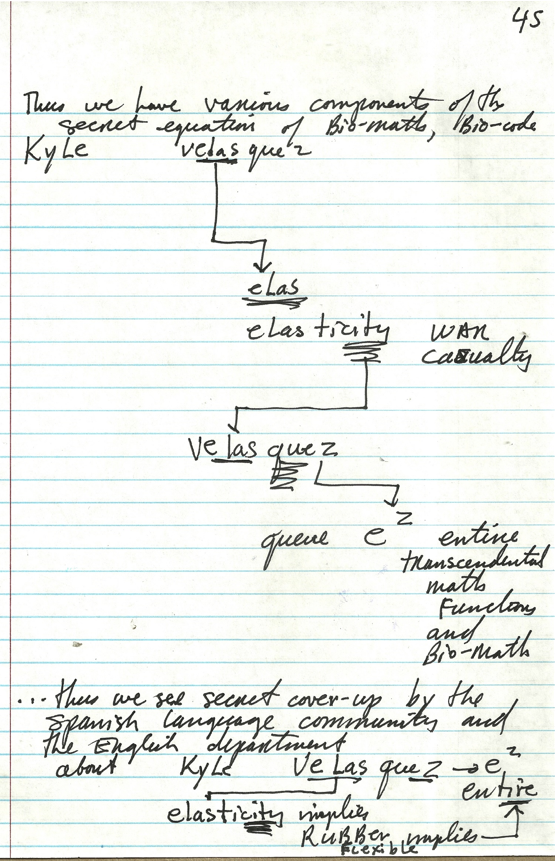 45
Thus we have various components of the
secret equation of Bio-math, Bio-code
KyLe velasquez
eLas
eLasticity WAR
casualty
Velasquez
queue e^z entire
transcendental
math
Functions
and
Bio-Math
... thus we see secret cover-up by the
Spanish Language community and
the English department
about KyLe VeLasquez → e^z
entire
elasticity implies
RUBBer implies
FLexible